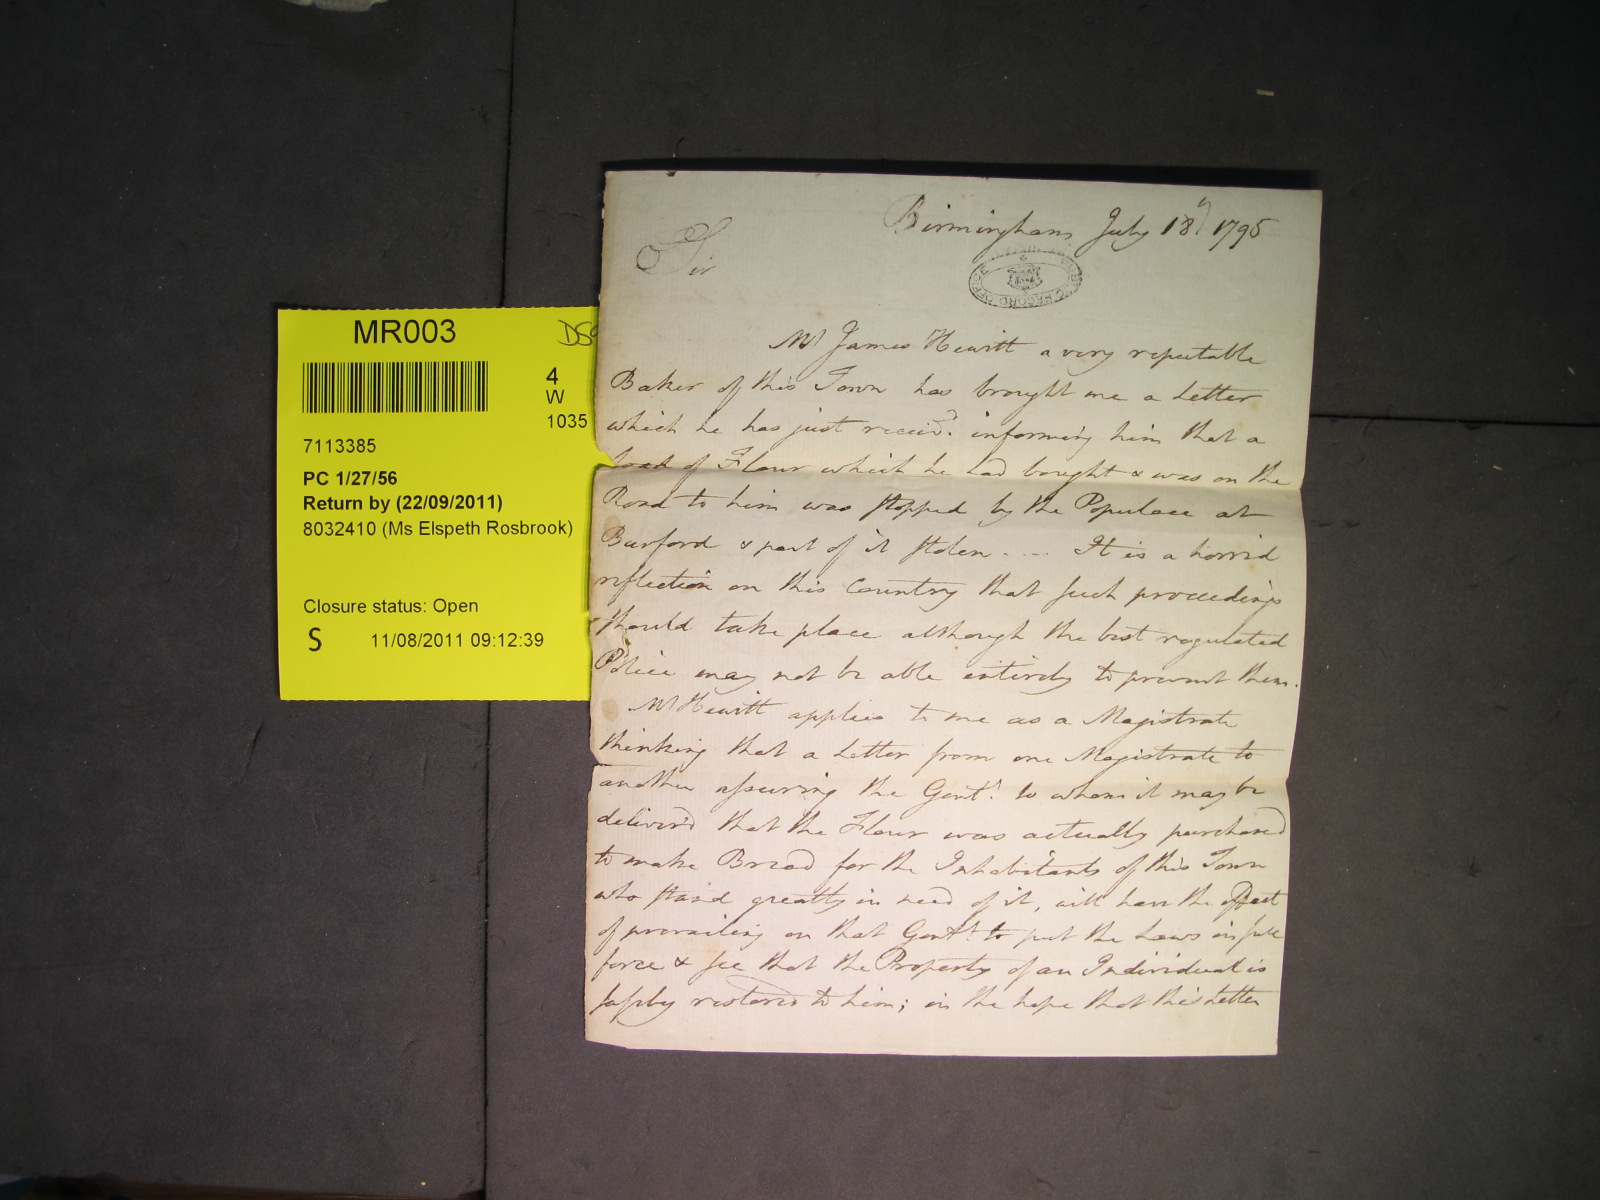 MR003
DS
4
W
1035
7113385
PC 1/27/56
Return by (22/09/2011)
8032410 (Ms Elspeth Rosbrook)
Closure status: Open
S 11/08/2011 09:12:39
Birmingham July 18th 1795
Sir
RECORD OFFICE
Mr James Hewitt a very reputable
Baker of this Town has brought me a Letter
which he has just receiv'd. informing him that a
load of Flour which he had bought & was on the
Road to him was stopped by the Populace at
Burford & part of it stolen - - - It is a horrid
reflection on this Country that such proceedings
should take place although the best regulated
Police may not be able entirely to prevent them.
Mr Hewitt applies to me as a Magistrate
thinking that a Letter from one Magistrate to
another assuring the Gent. to whom it may be
deliver'd that the Flour was actually purchased
to make Bread for the Inhabitants of this Town
who stand greatly in need of it, will have the effect
of prevailing on that Gent. to put the Laws in full
force & see that the Property of an Individual is
safely restored to him; in the hope that this Letter